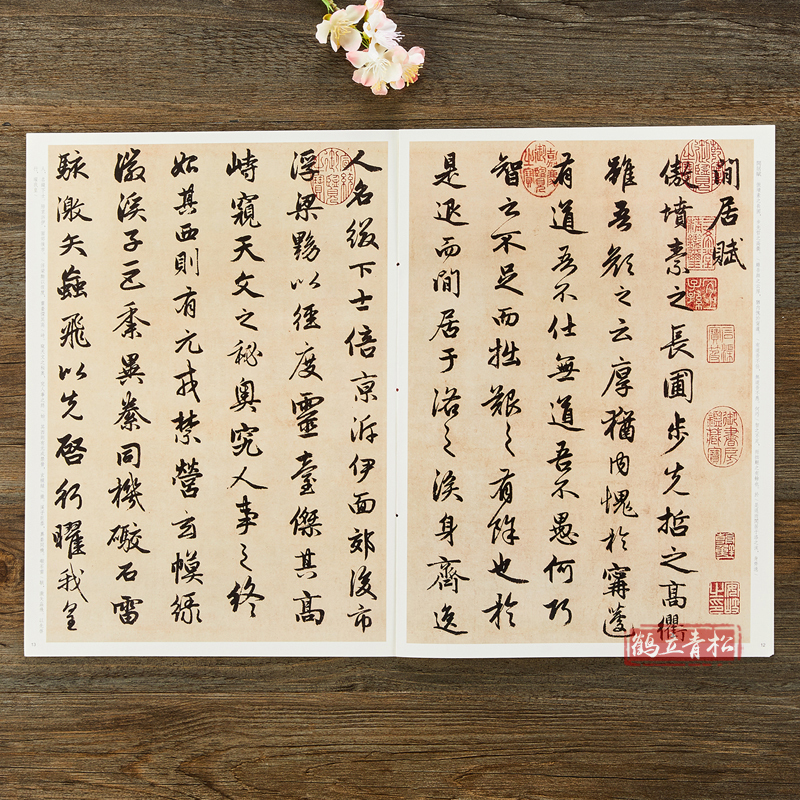 閒居賦
傲墳素之長圃步先哲之高衢
雖吾顏之云厚猶內愧於甯蘧
有道吾不仕無道吾不愚何巧
智之不足而拙艱之有餘也於
是退而閒居于洛之涘身齊逸
人名綴下士倍京泝伊面郊後市
浮梁黝以徑度靈臺傑其高
峙窺天文之秘奧究人事之終
始其西則有元戎禁營玄幙綠
徽溪子巨黍異絭同機礮石雷
駭激矢蝱飛以先啓行曜我皇
石渠寶笈
御書房鑑藏寶
嘉慶御覽之寶
鹤立青松